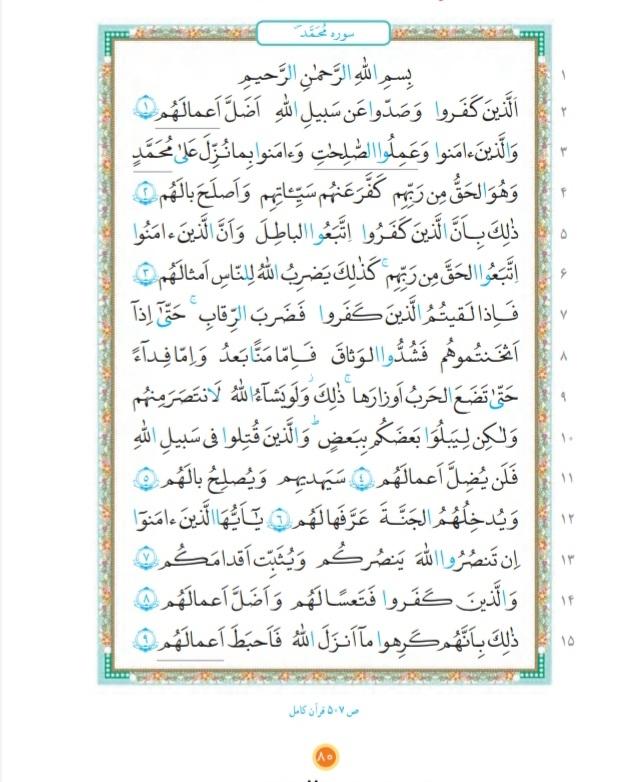 سوره مُحَمَّد
١ بِسمِ اللهِ الرَّحمٰنِ الرَّحيمِ
٢ اَلَّذينَ كَفَروا وَ صَدّوا عَن سَبيلِ اللهِ اَضَلَّ اَعمالَهُم ﴿١﴾
٣ وَالَّذينَ ءامَنوا وَ عَمِلُوا الصّٰلِحٰتِ وَ ءامَنوا بِما نُزِّلَ عَلىٰ مُحَمَّدٍ
۴ وَ هُوَ الحَقُّ مِن رَبِّهِم كَفَّرَ عَنهُم سَيِّـٔاتِهِم وَ اَصلَحَ بالَهُم ﴿٢﴾
۵ ذٰلِكَ بِاَنَّ الَّذينَ كَفَرُوا اتَّبَعُوا الباطِلَ وَ اَنَّ الَّذينَ ءامَنُوا
۶ اتَّبَعُوا الحَقَّ مِن رَبِّهِم ۚ كَذٰلِكَ يَضرِبُ اللهُ لِلنّاسِ اَمثالَهُم ﴿٣﴾
٧ فَاِذا لَقيتُمُ الَّذينَ كَفَروا فَضَربَ الرِّقابِ ۚ حَتّىٰٓ اِذآ
٨ اَثخَنتُموهُم فَشُدُّوا الوَثاقَ فَاِمّا مَنًّا بَعدُ وَ اِمّا فِدآءً
٩ حَتّىٰ تَضَعَ الحَربُ اَوزارَها ۚ ذٰلِكَ ۛ وَ لَو يَشآءُ اللهُ لَانتَصَرَ مِنهُم
١٠ وَلٰكِن لِيَبلُوَا بَعضَكُم بِبَعضٍ ۗ وَالَّذينَ قُتِلوا فى سَبيلِ اللهِ
١١ فَلَن يُضِلَّ اَعمالَهُم ﴿۴﴾ سَيَهديهِم وَ يُصلِحُ بالَهُم ﴿۵﴾
١٢ وَ يُدخِلُهُمُ الجَنَّةَ عَرَّفَها لَهُم ﴿۶﴾ يٰٓاَيُّهَا الَّذينَ ءامَنوٓا
١٣ اِن تَنصُرُوا اللهَ يَنصُركُم وَ يُثَبِّت اَقدامَكُم ﴿٧﴾
١۴ وَالَّذينَ كَفَروا فَتَعسًا لَهُم وَ اَضَلَّ اَعمالَهُم ﴿٨﴾
١۵ ذٰلِكَ بِاَنَّهُم كَرِهوا مآ اَنزَلَ اللهُ فَاَحبَطَ اَعمالَهُم ﴿٩﴾
ص ۵٠٧ قرآن کامل
٨٠